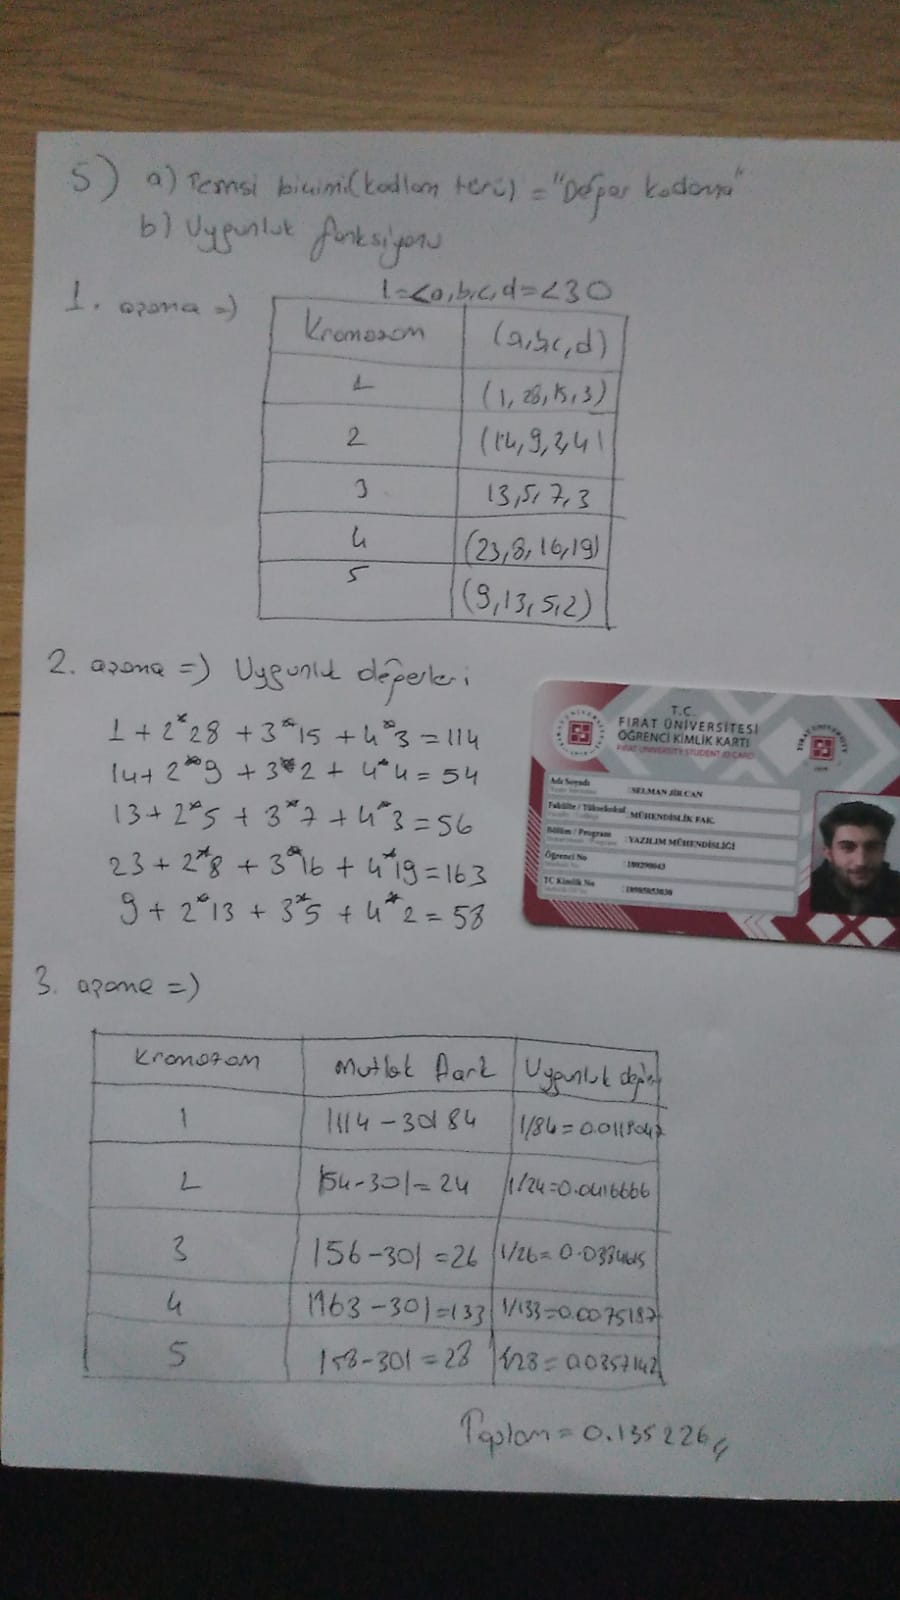 5) a) Temsi bicimi(kodlam türü) = "Değer kodama"
b) Uygunluk fonksiyonu
1. aşama =>
1=<a,b,c,d=<30
Kromozom (a,b,c,d)
1 (1, 28, 15, 3)
2 (14, 9, 2, 4)
3 13, 5, 7, 3
4 (23, 8, 16, 19)
5 (9, 13, 5, 2)
2. aşama =) Uygunluk değerleri
1 + 2*28 + 3*15 + 4*3 = 114
14 + 2*9 + 3*2 + 4*4 = 54
13 + 2*5 + 3*7 + 4*3 = 56
23 + 2*8 + 3*16 + 4*19 = 163
9 + 2*13 + 3*5 + 4*2 = 58
T.C.
FIRAT ÜNİVERSİTESİ
ÖĞRENCİ KİMLİK KARTI
FIRAT UNIVERSITY STUDENT ID CARD
Adı Soyadı : SELMAN JİR CAN
Fakülte / Yüksekokul : MÜHENDİSLİK FAK.
Bölüm / Program : YAZILIM MÜHENDİSLİĞİ
Öğrenci No
TC Kimlik No
3. aşama =)
Kromozom Mutlak Fark Uygunluk değeri
1 |114-30| 84 1/84=0.0119047
2 |54-30| = 24 1/24=0.0416666
3 |56-30| = 26 1/26=
4 |163-30|=133 1/133=0.0075187
5 |58-30| = 28 1/28 = 0.0357142
Toplam = 0.135226